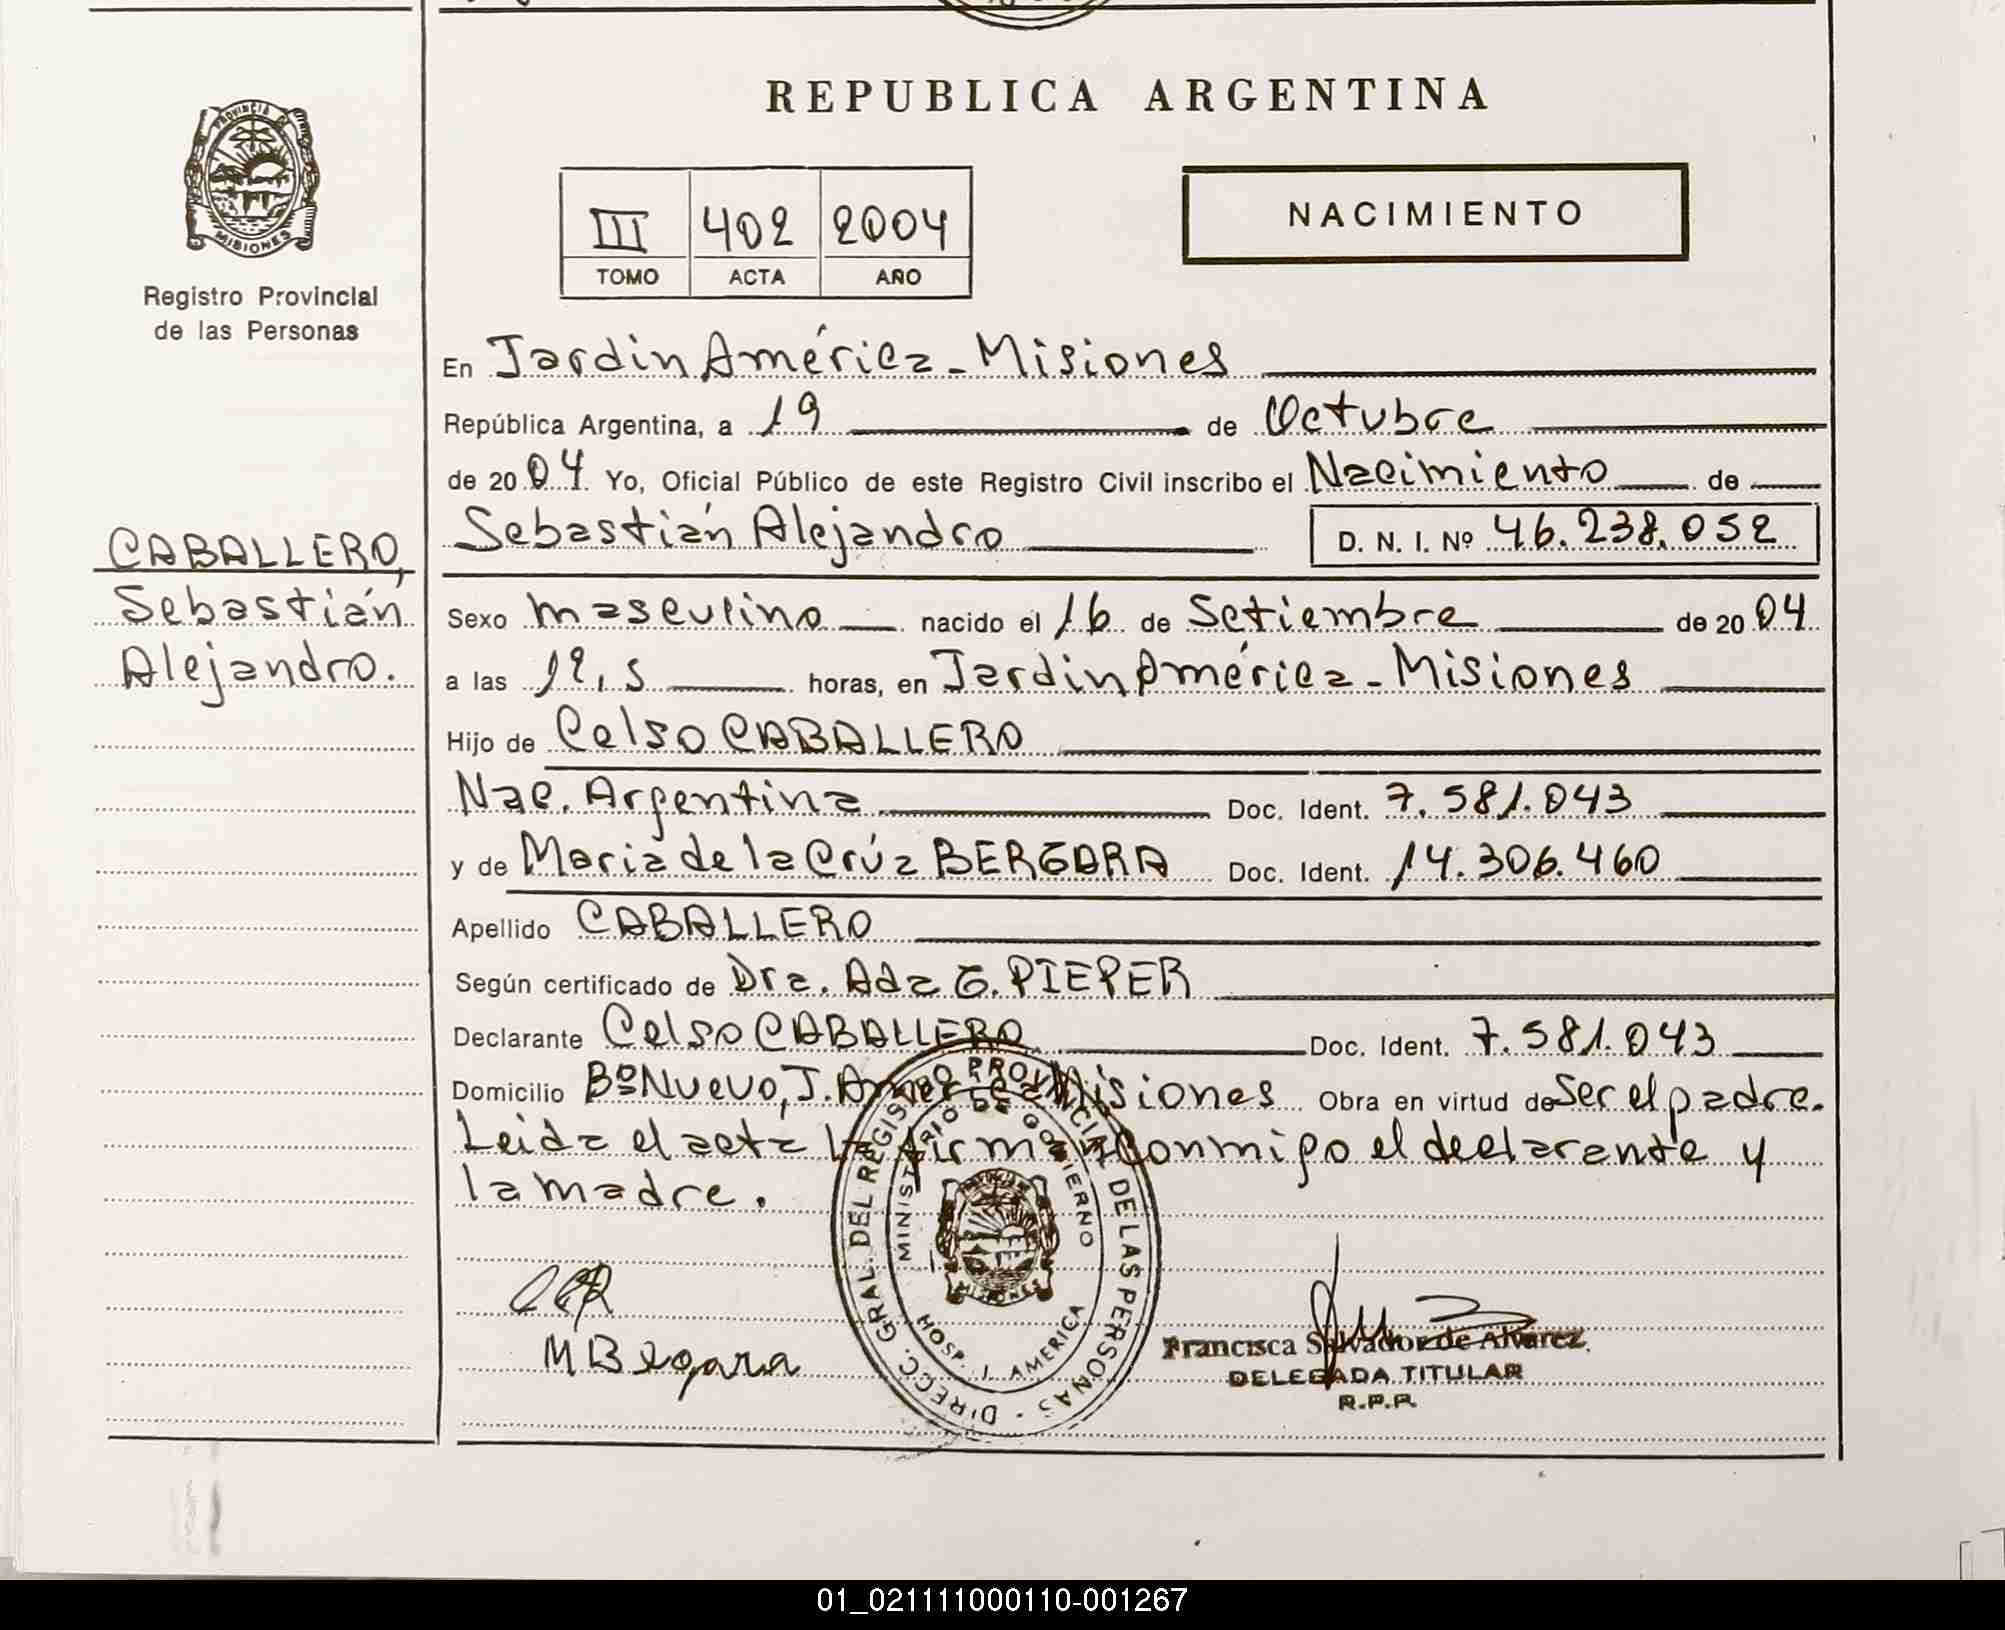 REPUBLICA ARGENTINA
PROVINCIA DE
MISIONES
Registro Provincial
de las Personas
III 402 2004
TOMO ACTA AÑO
NACIMIENTO
En Jardin América - Misiones
República Argentina, a 19 de Octubre
de 2004 Yo, Oficial Público de este Registro Civil inscribo el Nacimiento de
Sebastián Alejandro D. N. I. Nº 46.238.052
CABALLERO,
Sebastián
Alejandro.
Sexo masculino nacido el 16 de Setiembre de 2004
a las 12,5 horas, en Jardin América - Misiones
Hijo de Celso CABALLERO
Nac. Argentina Doc. Ident. 7.581.043
y de Maria de la Crúz BERGARA Doc. Ident. 14.306.460
Apellido CABALLERO
Según certificado de Dra. Ada G. PIEPER
Declarante Celso CABALLERO Doc. Ident. 7.581.043
Domicilio Bº Nuevo, J. América Misiones Obra en virtud de Ser el padre.
Leida el acta la firman conmigo el declarante y
la madre.
DIRECC. GRAL. DEL REGISTRO PROVINCIAL DE LAS PERSONAS
MINISTERIO DE GOBIERNO
MISIONES
HOSP. J. AMERICA
M Begara
Francisca Salvador de Alvarez
DELEGADA TITULAR
R.P.P.
01_021111000110-001267